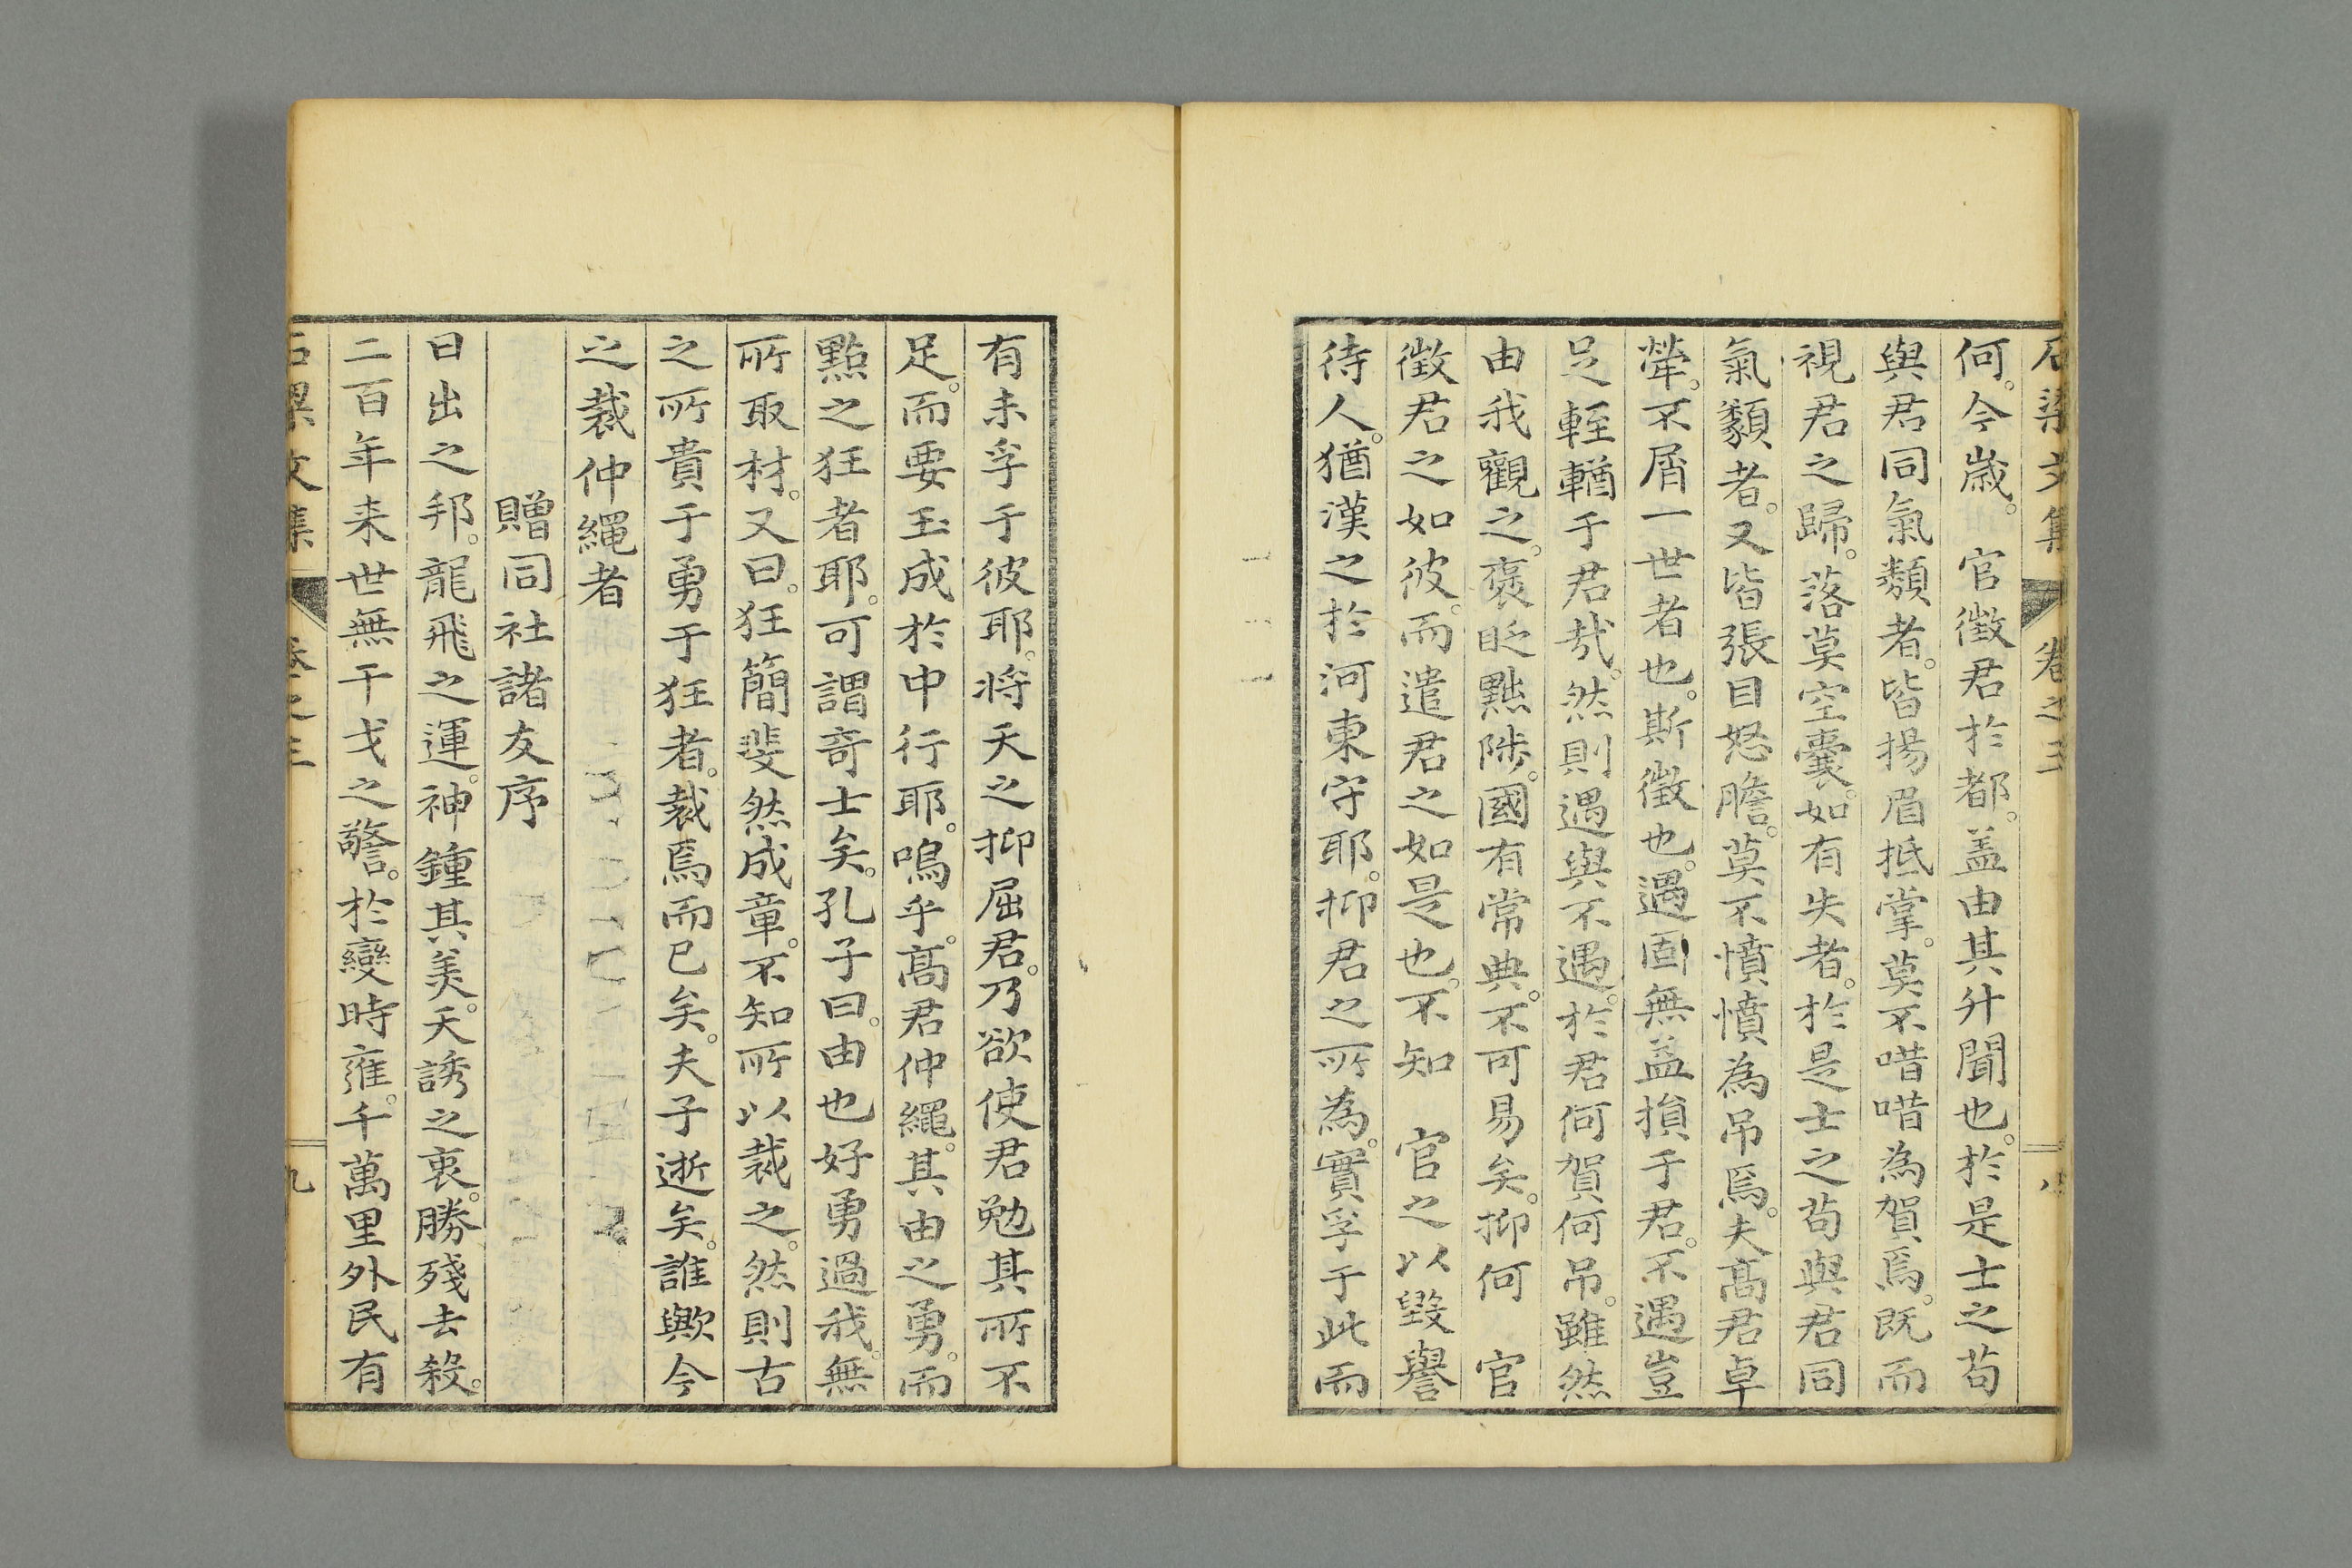 石梁文集 卷之三 八
何。今歳。 官徵君於都。盖由其升聞也。於是士之苟
與君同氣類者。皆揚眉抵掌。莫不唶唶為賀焉。既而
視君之歸。落莫空囊。如有失者。於是士之苟與君同
氣類者。又皆張目怒膽。莫不憤憤為吊焉。夫髙君卓
犖。不屑一世者也。斯徵也。遇固無益損于君。不遇豈
足輊輶于君㢤。然則遇與不遇。於君何賀何吊。雖然
由我觀之。褒貶黜陟。國有常典。不可易矣。抑何 官
徵君之如彼。而遣君之如是也。不知 官之以毀譽
待人。猶漢之於河東守耶。抑君之所為。實孚于此而
有未孚于彼耶。将天之抑屈君。乃欲使君勉其所不
足。而要玉成於中行耶。嗚乎。髙君仲繩。其由之勇。而
㸃之狂者耶。可謂奇士矣。孔子曰。由也好勇過我。無
所取材。又曰。狂簡斐然成章。不知所以裁之。然則古
之所貴于勇于狂者。裁焉而已矣。夫子逝矣。誰歟今
之裁仲繩者
贈同社諸友序
日出之邦。龍飛之運。神鍾其美。天誘之衷。勝殘去殺。
二百年来世無干戈之警。於變時雍。千萬里外民有
石梁文集 卷之三 九